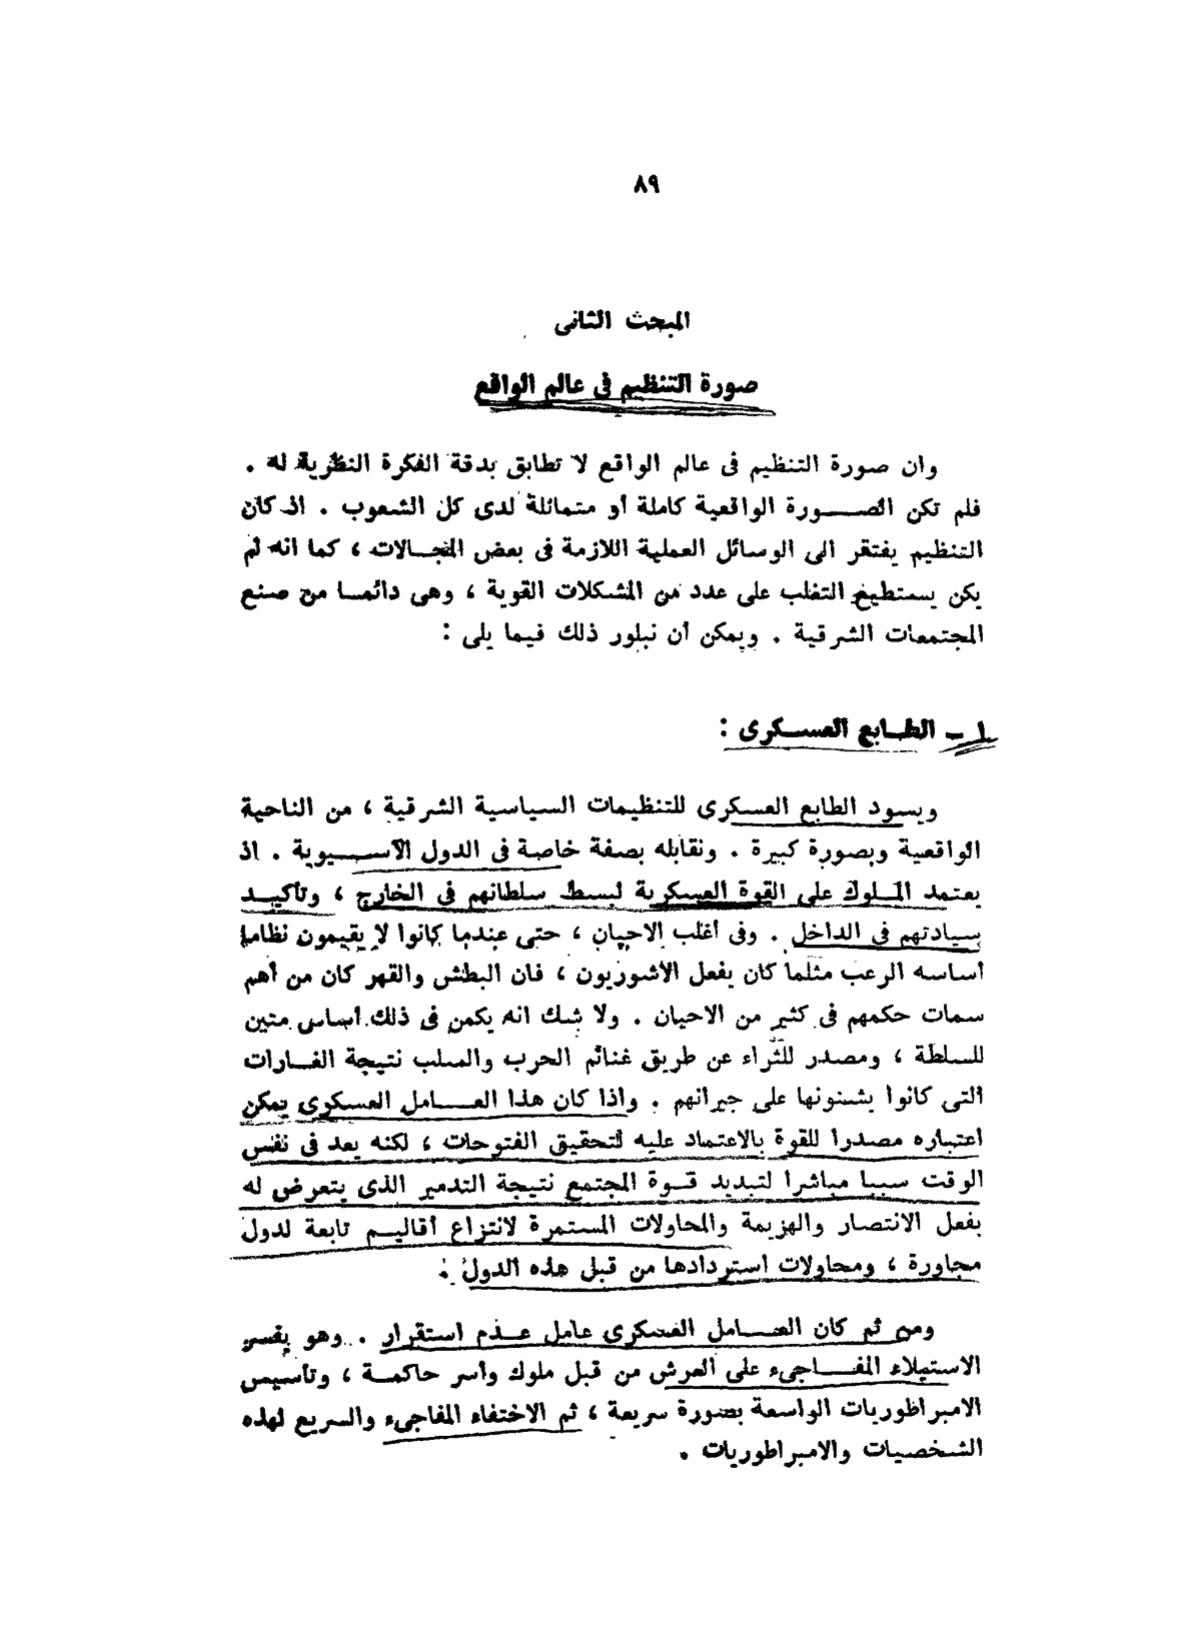 ٨٩
المبحث الثانى
صورة التنظيم فى عالم الواقع
وان صورة التنظيم فى عالم الواقع لا تطابق بدقة الفكرة النظرية له .
فلم تكن الصورة الواقعية كاملة أو متماثلة لدى كل الشعوب . اذ كان
التنظيم يفتقر الى الوسائل العملية اللازمة فى بعض المجالات ، كما انه لم
يكن يستطيع التغلب على عدد من المشكلات القوية ، وهى دائما من صنع
المجتمعات الشرقية . ويمكن أن نبلور ذلك فيما يلى :
١ - الطابع العسكرى :
ويسود الطابع العسكرى للتنظيمات السياسية الشرقية ، من الناحية
الواقعية وبصورة كبيرة . ونقابله بصفة خاصة فى الدول الآسيوية . اذ
يعتمد الملوك على القوة العسكرية لبسط سلطانهم فى الخارج ، وتأكيد
سيادتهم فى الداخل . وفى أغلب الاحيان ، حتى عندما كانوا لا يقيمون نظاما
أساسه الرعب مثلما كان يفعل الأشوريون ، فان البطش والقهر كان من أهم
سمات حكمهم فى كثير من الاحيان . ولا شك انه يكمن فى ذلك أساس متين
للسلطة ، ومصدر للثراء عن طريق غنائم الحرب والسلب نتيجة الغارات
التى كانوا يشنونها على جيرانهم . واذا كان هذا العامل العسكرى يمكن
اعتباره مصدرا للقوة بالاعتماد عليه لتحقيق الفتوحات ، لكنه يعد فى نفس
الوقت سببا مباشرا لتبديد قوة المجتمع نتيجة التدمير الذى يتعرض له
بفعل الانتصار والهزيمة والمحاولات المستمرة لانتزاع أقاليم تابعة لدول
مجاورة ، ومحاولات استردادها من قبل هذه الدول .
ومن ثم كان العامل العسكرى عامل عدم استقرار . وهو يفسر
الاستيلاء المفاجىء على العرش من قبل ملوك وأسر حاكمة ، وتأسيس
الامبراطوريات الواسعة بصورة سريعة ، ثم الاختفاء المفاجىء والسريع لهذه
الشخصيات والامبراطوريات .